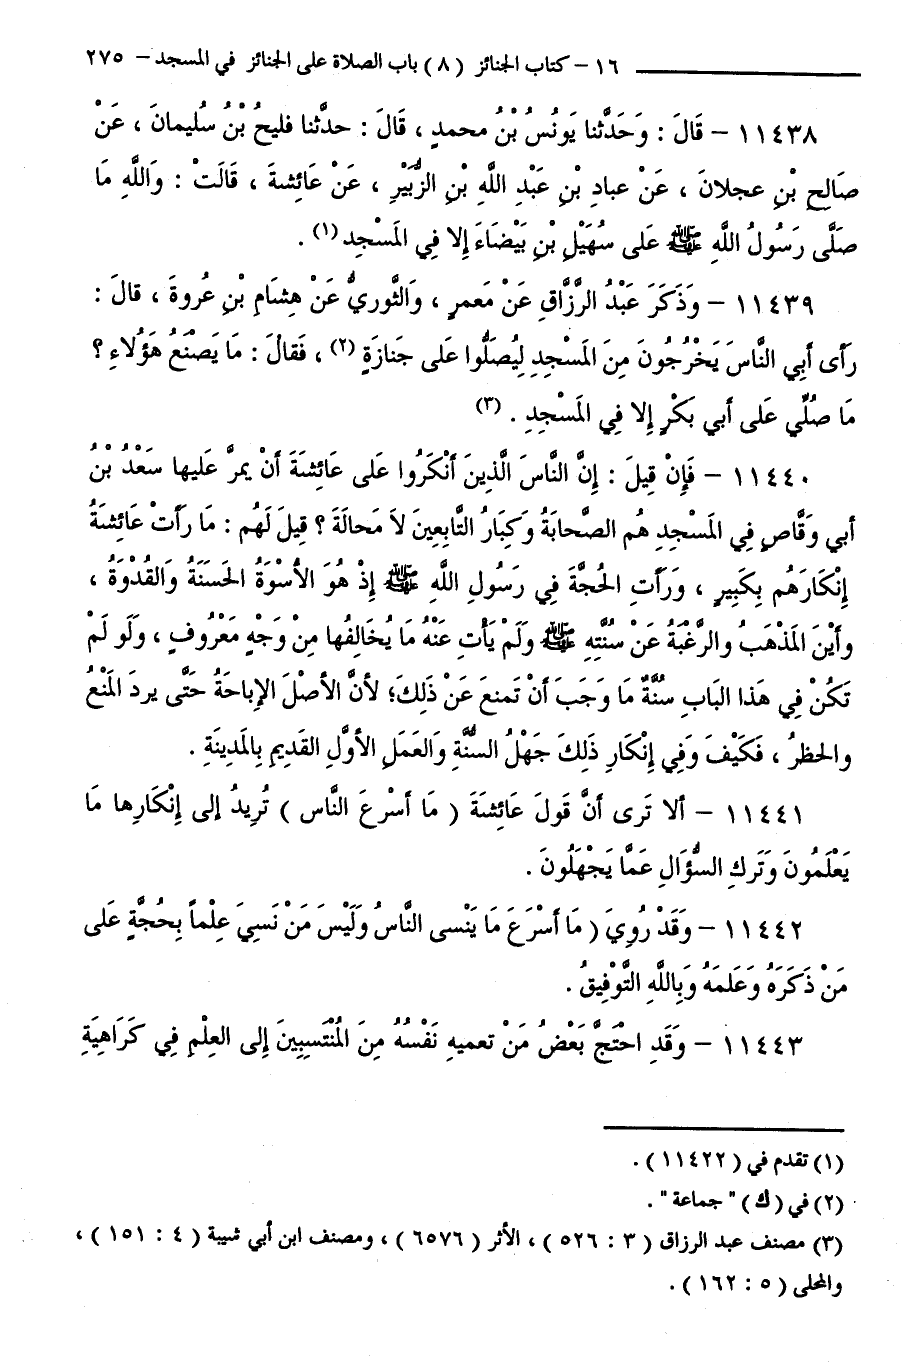 ١٦ - كتاب الجنائز ( ٨ ) باب الصلاة على الجنائز في المسجد - ٢٧٥
١١٤٣٨ - قَالَ : وَحَدَّثنا يَونُسُ بْنُ محمدٍ ، قَالَ : حدثَّنا فليحُ بْنُ سُليمانَ ، عَنْ
صَالِحِ بْنِ عجلانَ ، عَنْ عبادِ بْنِ عَبْدِ اللَّهِ بْنِ الزُّبَيْرِ ، عَنْ عَائِشةَ ، قَالَتْ : وَاللَّهِ مَا
صَلَّى رَسُولُ اللَّهِ ﷺ عَلى سُهَيْلِ بْنِ بَيْضَاءَ إِلا فِي المَسْجِدِ (١) .
١١٤٣٩ - وَذَكَرَ عَبْدُ الرَّزَّاقِ عَنْ مَعمرٍ ، وَالثَّوريُّ عَنْ هِشَامِ بْنِ عُروةَ ، قالَ :
رَأى أبِي النَّاسَ يَخْرُجُونَ مِنَ المَسْجِدِ لِيُصَلُّوا عَلى جَنازَةٍ (٢) ، فَقالَ : مَا يَصْنَعُ هَؤُلاءِ ؟
مَا صُلِّي عَلى أبي بَكْرٍ إِلا فِي المَسْجِدِ . (٣)
١١٤٤٠ - فَإِنْ قِيلَ : إِنَّ النَّاسَ الَّذِينَ أَنْكَرُوا عَلى عَائِشَةَ أَنْ يمرَّ عَليها سَعْدُ بْنُ
أبي وَقَّاصٍ فِي المَسْجِدِ هُم الصَّحابَةُ وَكِبَارُ التَّابِعِينَ لاَ مَحالَةَ ؟ قِيلَ لَهُم : مَا رَأتْ عَائِشَةُ
إِنْكَارَهُم بِكَبِيرٍ ، وَرَأتِ الحُجَّةَ فِي رَسُولِ اللَّهِ ﷺ إِذْ هُوَ الأُسْوَةُ الحَسَنَةُ وَالقُدْوَةُ ،
وأَيْنَ المَذْهَبُ والرَّغْبَةُ عَنْ سُنَّتِهِ ﷺ وَلَمْ يَأتِ عَنْهُ مَا يُخَالِفُها مِنْ وَجْهٍ مَعْرُوفٍ ، وَلَو لَمْ
تَكُنْ فِي هَذا البَابِ سُنَّةٌ مَا وَجَبَ أَنْ تَمنعَ عَنْ ذَلِكَ؛ لأنَّ الأصْلَ الإِباحَةُ حَتَّى يردَ المَنْعُ
والحظرُ ، فَكَيْفَ وَفِي إِنْكَارِ ذَلِكَ جَهْلُ السُّنَّةِ وَالعَمَلِ الأوَّلِ القَدِيمِ بِالمَدِينَةِ .
١١٤٤١ - ألا تَرى أَنَّ قَولَ عَائِشَةَ ( مَا أَسْرعَ النَّاس ) تُرِيدُ إلى إِنْكارِها مَا
يَعْلَمُونَ وَتَركِ السُّؤَالِ عَمَّا يَجْهَلُونَ .
١١٤٤٢ - وَقَدْ رُوِيَ ( مَا أَسْرَعَ مَا يَنْسى النَّاسُ وَلَيْسَ مَنْ نَسِيَ عِلْماً بِحُجَّةٍ عَلى
مَنْ ذَكَرَهُ وَعَلمَهُ وَبِاللَّهِ التَّوْفِيقُ .
١١٤٤٣ - وَقَدِ احْتَجَّ بَعْضُ مَنْ تعميهِ نَفْسُهُ مِنَ المُنْتَسِبِينَ إِلى العِلْمِ فِي كَرَاهِيَةِ
(١) تقدم في ( ١١٤٢٢ ) .
(٢) في ( ك ) " جماعة " .
(٣) مصنف عبد الرزاق ( ٣ : ٥٢٦ ) ، الأثر ( ٦٥٧٦ ) ، ومصنف ابن أبي شيبة ( ٤ : ١٥١ ) ،
والمحلى ( ٥ : ١٦٢ ) .